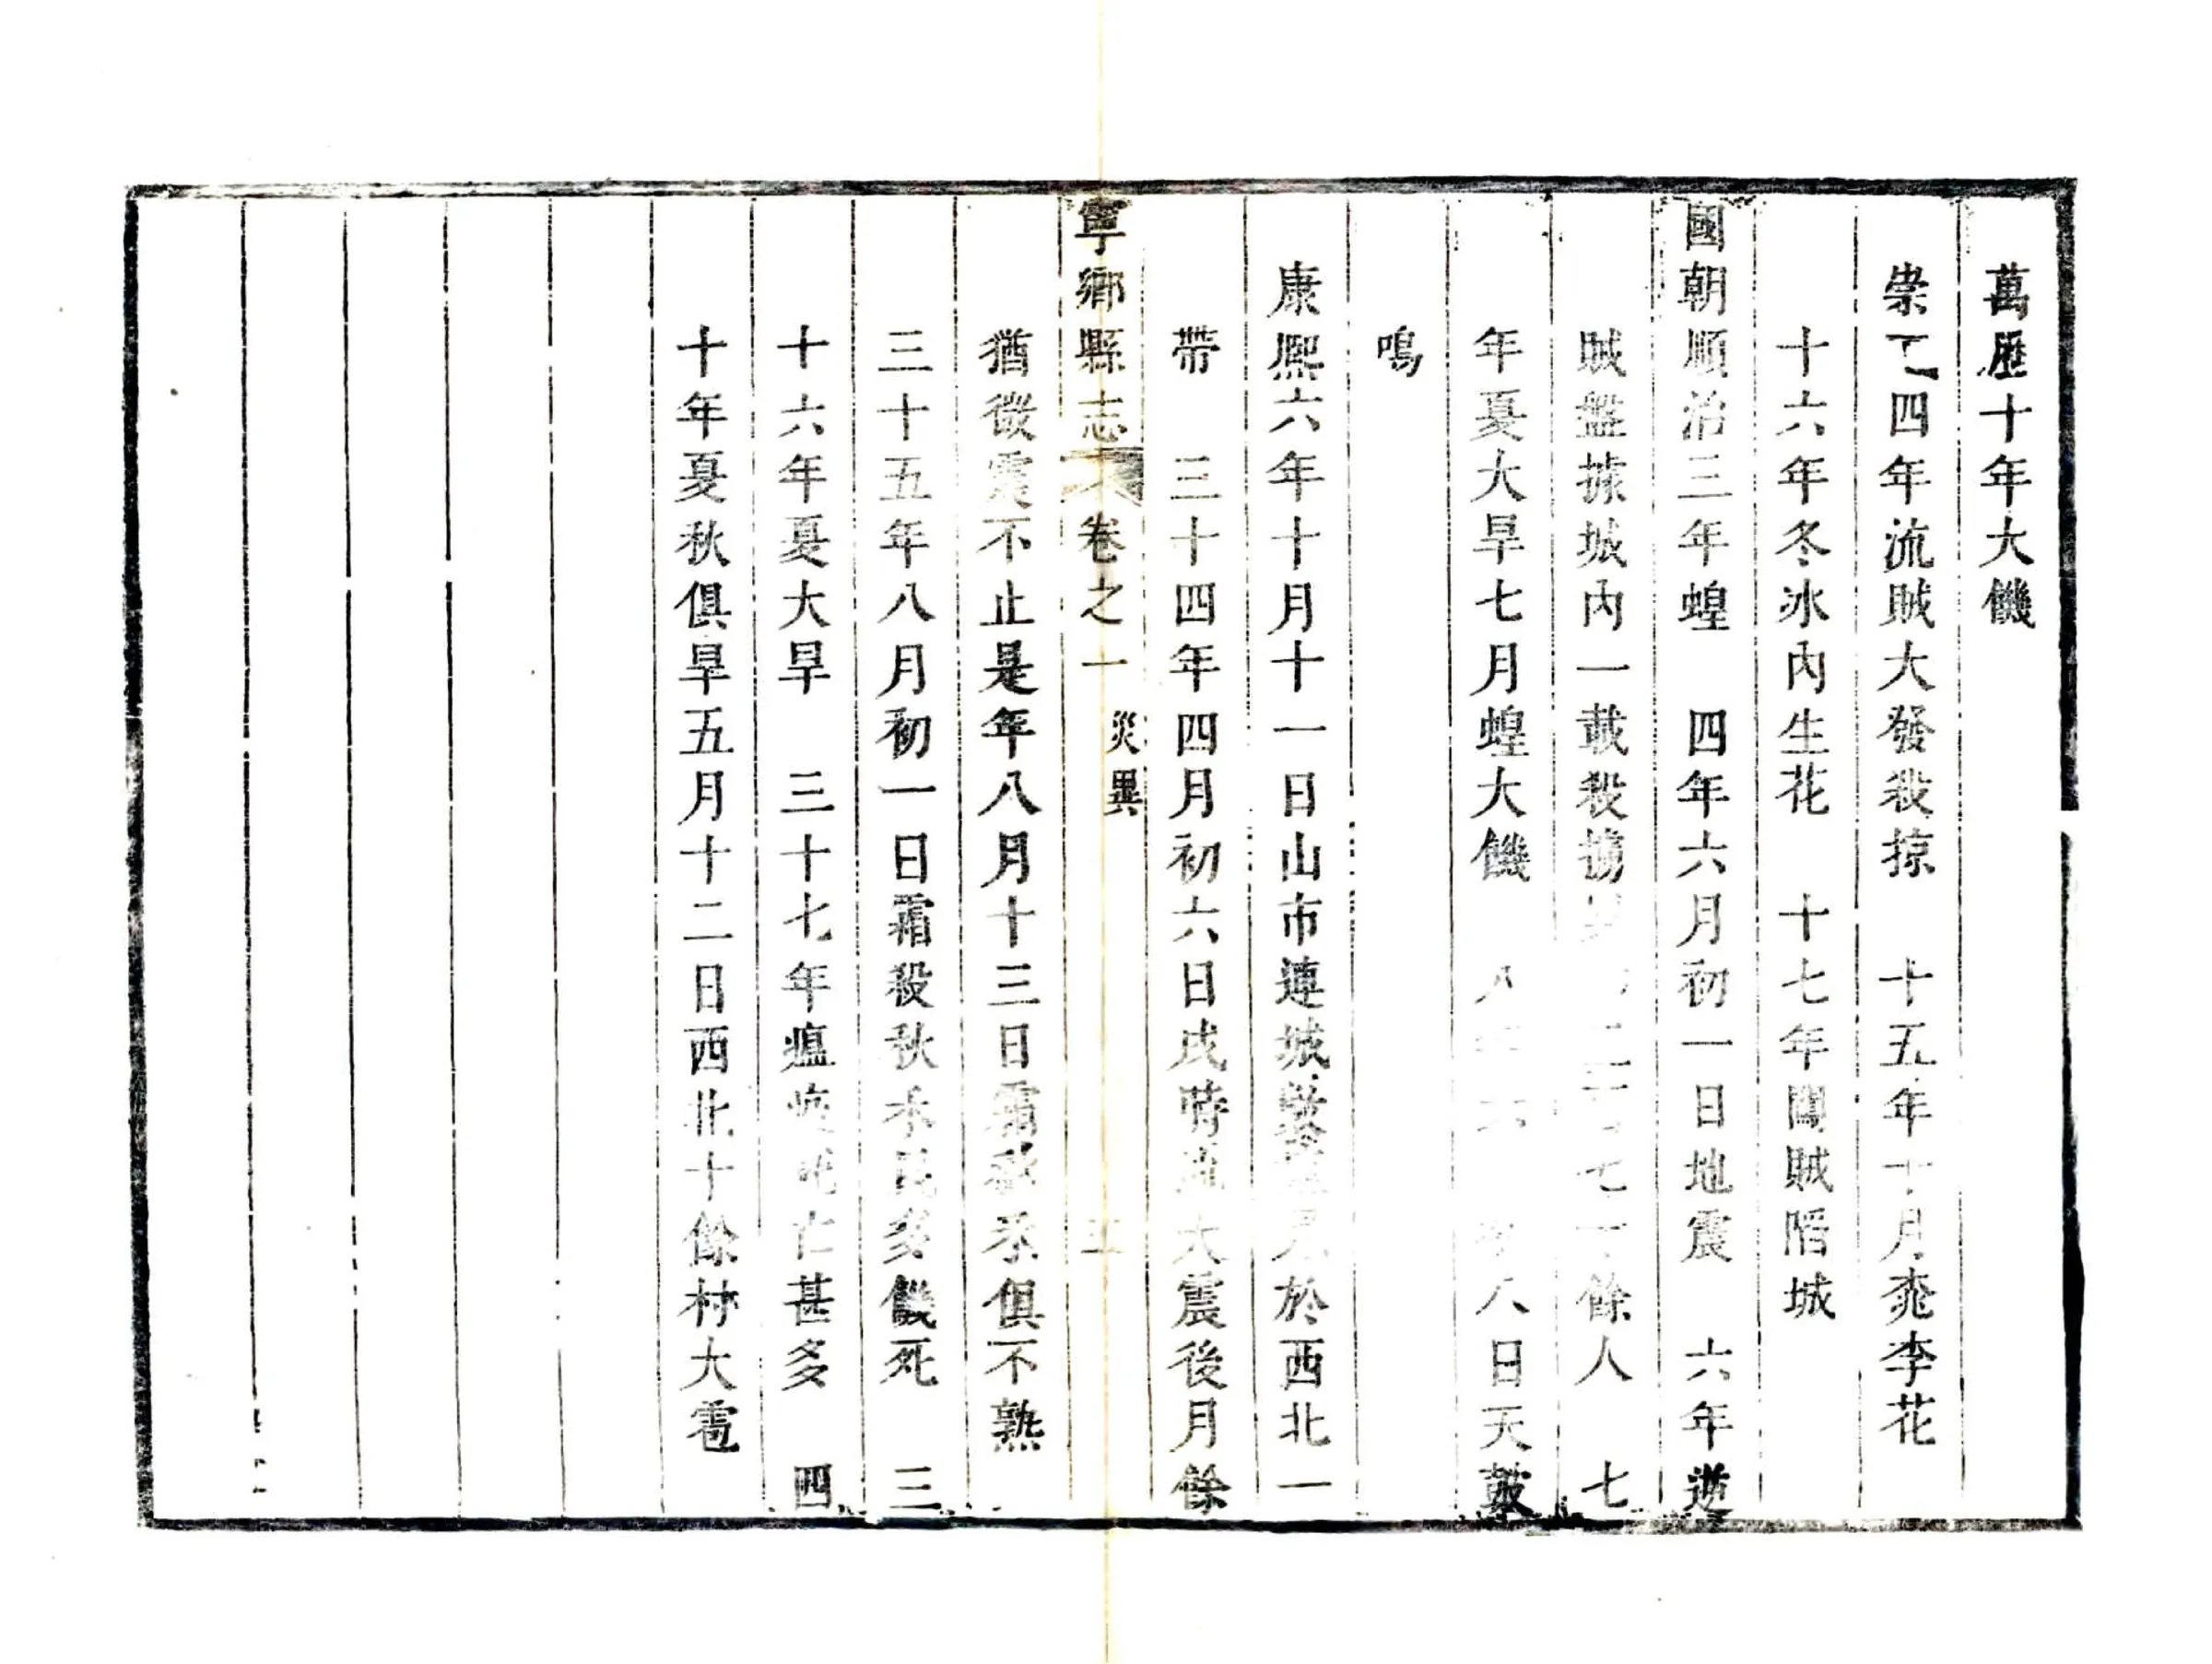 萬歷十年大饑
崇四年流賊大發殺掠　十五年十月桃李花
十六年冬冰內生花　十七年闖賊陷城
國朝順治三年蝗　四年六月初一日地震　六年逆
賊盤據城內一載殺擄　七十餘人　七
年夏大旱七月蝗大饑　八年六　八日天鼓
鳴
康熙六年十月十一日山市連城　於西北一
帶　三十四年四月初六日戌時地大震後月餘
寧鄉縣志　卷之一　災異　五
猶微震不止是年八月十三日霜殺禾俱不熟
三十五年八月初一日霜殺秋禾民多饑死　三
十六年夏大旱　三十七年瘟疫死亡甚多　四
十年夏秋俱旱五月十二日西北十餘村大雹